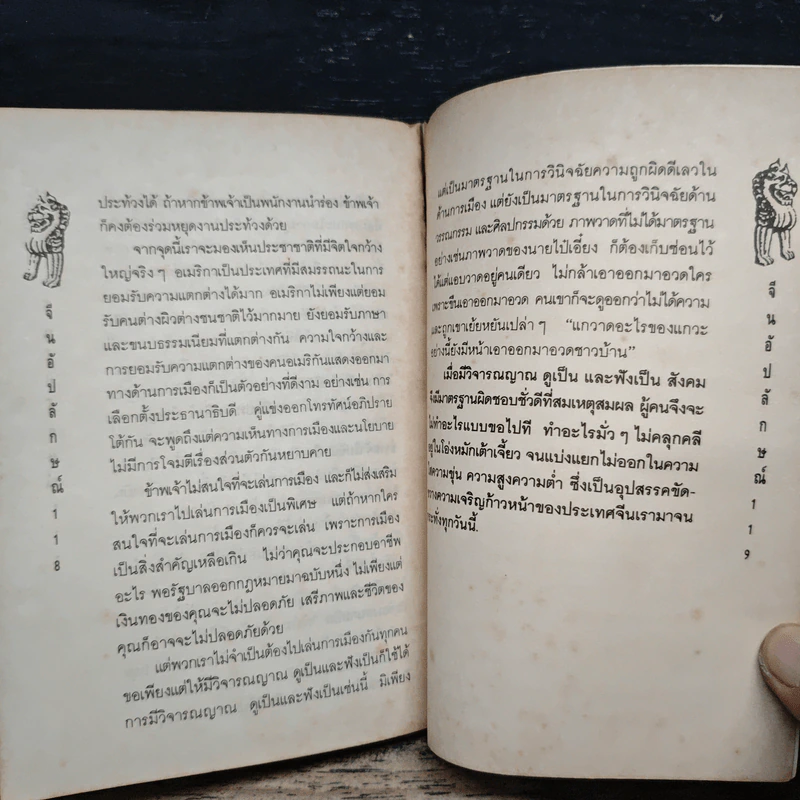 ประท้วงได้ ถ้าหากข้าพเจ้าเป็นพนักงานนำร่อง ข้าพเจ้า
ก็คงต้องร่วมหยุดงานประท้วงด้วย
จากจุดนี้เราจะมองเห็นประชาชาติที่มีจิตใจกว้าง
ใหญ่จริงๆ อเมริกาเป็นประเทศที่มีสมรรถนะในการ
ยอมรับความแตกต่างได้มาก อเมริกาไม่เพียงแต่ยอม
รับคนต่างผิวต่างชนชาติไว้มากมาย ยังยอมรับภาษา
และขนบธรรมเนียมที่แตกต่างกัน ความใจกว้างและ
การยอมรับความแตกต่างของคนอเมริกันแสดงออกมา
ทางด้านการเมืองก็เป็นตัวอย่างที่ดีงาม อย่างเช่น การ
เลือกตั้งประธานาธิบดี คู่แข่งออกโทรทัศน์อภิปราย
โต้กัน จะพูดถึงแต่ความเห็นทางการเมืองและนโยบาย
ไม่มีการโจมตีเรื่องส่วนตัวกันหยาบคาย
ข้าพเจ้าไม่สนใจที่จะเล่นการเมือง และก็ไม่ส่งเสริม
ให้พวกเราไปเล่นการเมืองเป็นพิเศษ แต่ถ้าหากใคร
สนใจที่จะเล่นการเมืองก็ควรจะเล่น เพราะการเมือง
เป็นสิ่งสำคัญเหลือเกิน ไม่ว่าคุณจะประกอบอาชีพ
อะไร พอรัฐบาลออกกฎหมายมาฉบับหนึ่ง ไม่เพียงแต่
เงินทองของคุณจะไม่ปลอดภัย เสรีภาพและชีวิตของ
คุณก็อาจจะไม่ปลอดภัยด้วย
แต่พวกเราไม่จำเป็นต้องไปเล่นการเมืองกันทุกคน
ขอเพียงแต่ให้มีวิจารณญาณ ดูเป็นและฟังเป็นก็ใช้ได้
การมีวิจารณญาณ ดูเป็นและฟังเป็นเช่นนี้ มิเพียง
จีนอัปลักษณ์ 118
แต่เป็นมาตรฐานในการวินิจฉัยความถูกผิดดีเลวใน
ด้านการเมือง แต่ยังเป็นมาตรฐานในการวินิจฉัยด้าน
วรรณกรรม และศิลปกรรมด้วย ภาพวาดที่ไม่ได้มาตรฐาน
อย่างเช่นภาพวาดของนายไป๋เอี๋ยง ก็ต้องเก็บซ่อนไว้
ได้แต่แอบวาดอยู่คนเดียว ไม่กล้าเอาออกมาอวดใคร
เพราะขืนเอาออกมาอวด คนเขาก็จะดูออกว่าไม่ได้ความ
และถูกเขาเย้ยหยันเปล่าๆ “แกวาดอะไรของแกวะ
อย่างนี้ยังมีหน้าเอาออกมาอวดชาวบ้าน”
เมื่อมีวิจารณญาณ ดูเป็น และฟังเป็น สังคม
จึงมีมาตรฐานผิดชอบชั่วดีที่สมเหตุสมผล ผู้คนจึงจะ
ไม่ทำอะไรแบบขอไปที ทำอะไรมั่วๆ ไม่คลุกคลี
อยู่ในโอ่งหมักเต้าเจี้ยว จนแบ่งแยกไม่ออกในความ
ใสความขุ่น ความสูงความต่ำ ซึ่งเป็นอุปสรรคขัด-
ขวางความเจริญก้าวหน้าของประเทศจีนเรามาจน
กระทั่งทุกวันนี้.
จีนอัปลักษณ์ 119